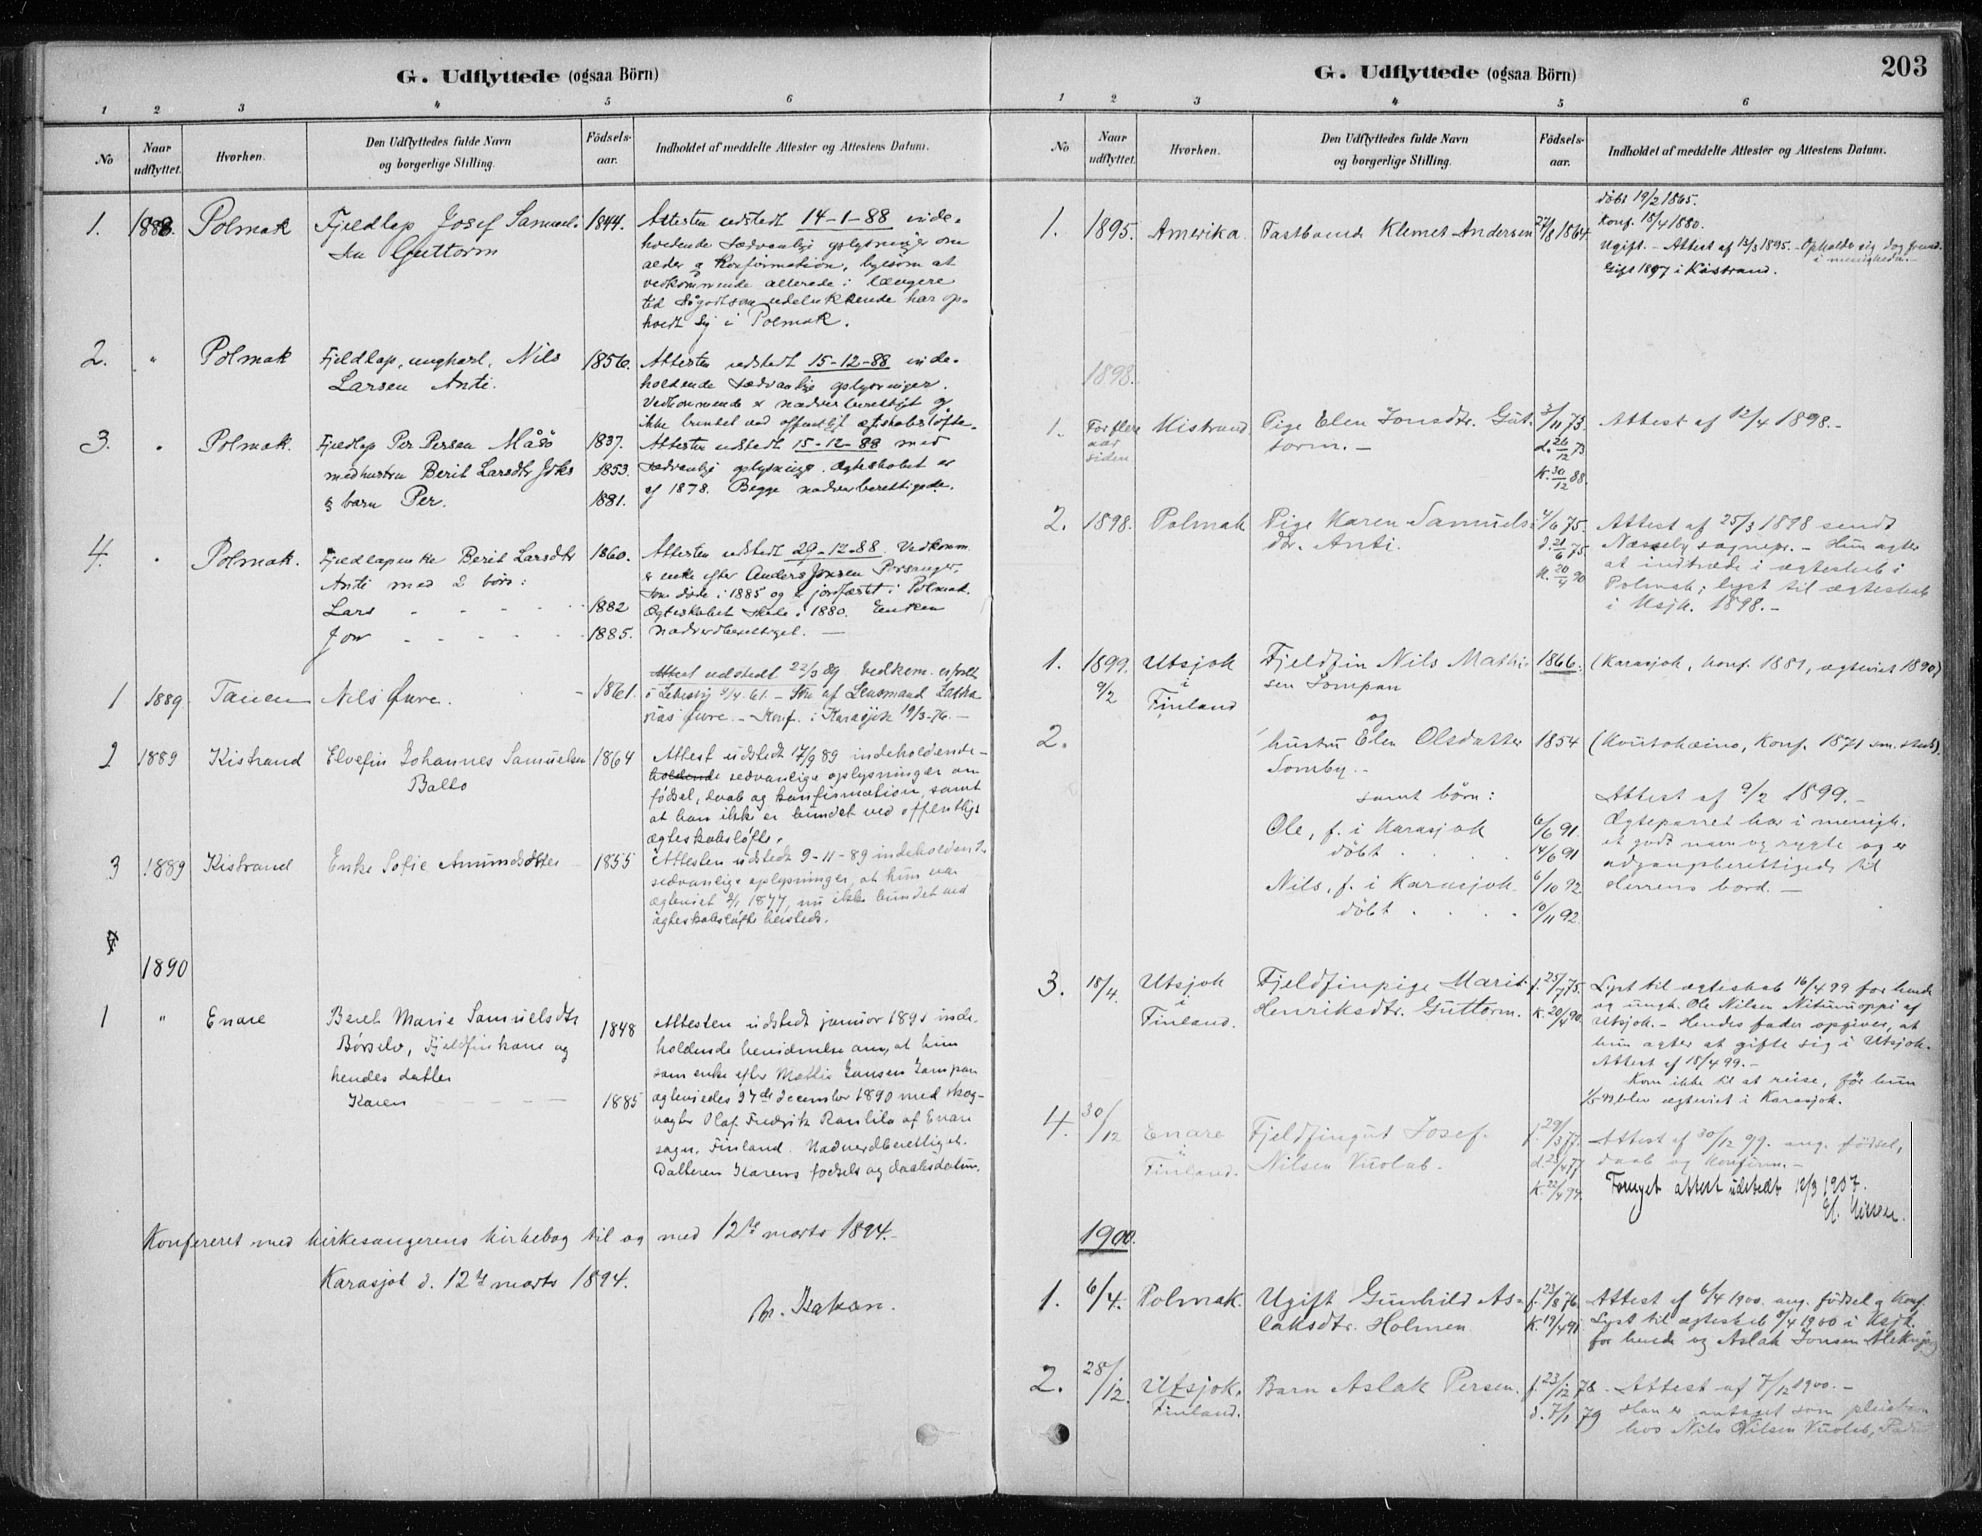 G. Udflyttede (ogsaa Börn)
1 2 3 4 5 6
No
Naar udflyttet.
Hvorhen.
Den Udflyttedes fulde Navn
og borgerlige Stilling.
Födsels-
aar.
Indholdet af meddelte Attester og Attestens Datum.
1. 1888. Polmak Fjeldlap Josef Samuel- 1844. Attesten udstedt 14-1-88 inde-
sen Guttorm
holdende sædvanlige oplysninger om
alder og Konfirmation, ligesom at
vedkommende allerede i længere
tid udelukkende har op-
holdt sig i Polmak.
2. " Polmak Fjeldlap, ungkarl, Nils 1856. Attesten udstedt 15-12-88 inde-
Larsen Anti.
holdende sædvanlige oplysninger.
Vedkommende er nadverberettiget og
ikke bundet ved offentligt ægteskabsløfte.
3. " Polmak. Fjeldlap Per Persen Måsö 1837. Attesten udstedt 15-12-88 med
med hustru Berit Larsdtr 1853. sædvanlige oplysninger. Ægteskabet er
& barn Per. 1881. af 1878. Begge nadverberettigede.
4. " Polmak. Fjeldlapenke Berit Larsdtr 1860. Attesten udstedt 29-12-88. Vedkomm.
Anti med 2 börn:
er enke efter Anders Jonsen Porsanger,
som døde i 1885 og er jordfæstet i Polmak.
Lars - - - - 1882 Ægteskabet skede i 1880. Enken
Jon - - - - 1885. nadverdberettiget. —
Attest udstedt 22/3 89. Vedkom. er født
1 1889. Tanen Nils Øvre. - 1861. i Lebesby 9/4.61. - Søn af Lensmand
Øvre. - Konf. i Karasjok 19/3-76. -
2 1889 Kistrand Elvefin Johannes Samuelsen 1864 Attest udstedt 17/9 89 indeholdende
Balto
holdende sedvanlige oplysninger om
fødsel, daab og konfirmation, samt
at han ikke er bundet ved offentligt
ægteskabsløfte.
3 1889 Kistrand Enke Sofie Amundsdatter 1855 Attesten udstedt 9-11-89 indeholdende
sedvanlige oplysninger, at hun var
ægteviet 1877, nu ikke bundet ved
ægteskabsløfte
1890
1 " Enare Bereth Marie Samuelsdtr 1848 Attesten udstedt januar 1891 inde-
Börselv, Fjeldfinkone og
holdende bevidnelse om, at hun
hendes datter
som enke efter Mathis Jonsen Sompan
Karen - - - - 1885 ægteviedes 27de december 1890 med skog-
vogter Olaf Fredrik af Enare
sogn, Finland. Nadverdberettiget.
Datteren Karens fødsels og daabsdatum.
Konfereret med kirkesangerens kirkebog til og med 12te marts 1894.
Karasjok d. 12te marts 1894.
203
G. Udflyttede (ogsaa Börn)
1 2 3 4 5 6
No
Naar
udflyttet.
Hvorhen.
Den Udflyttedes fulde Navn
og borgerlige Stilling.
Födsels-
aar.
Indholdet af meddelte Attester og Attestens Datum.
döbt 19/2 1865.
Konf. 18/4 1880.
1. 1895. Amerika. Fastboende Klemet Andersen 22/8 1864 Ugift. - Attest af 13/3 1895. - Opholder sig dog fremd.
i menigheden. -
Gift 1897 i Kistrand.
1898.
1. For flere Kistrand Pige Elen Jonsdtr. Gut- 3/11 73. Attest af 12/4 1898. -
aar
siden
torm. -
d. 26/12 73
K. 30/12 88.
2. 1898. Polmak Pige Karen Samuels- 4/6 75. Attest af 25/3 1898 sendt
dtr. Anti.
d. 21/6 75 Næsseby sognepr. - Hun agter
K. 20/4 90 at indtræde i ægteskab i
Polmak; lyst til ægteskab
i Ksjk. 1898. -
1. 1899. Utsjok Fjeldfin Nils Mathi- 1866. (Karasjok, konf. 1881, ægteviet 1890)
9/2 i
sen Sompan
Finland
og
2. hustru Elen Olsdatter 1854 (Koutokæino, Konf. 1871 sm. steds).
Somby. -
samt börn:
Attest af 9/2 1899. -
Ole, f. i Karasjok 6/6 91. Ægteparret har i menigh.
döbt . . . 14/6 91 et godt navn og rygte og er
adgangsberettigede til
Nils, f. i Karasjok 6/10 92 Herrens bord. -
döbt . . . . 10/11 92.
3. 18/4. Utsjok Fjeldfinpige Marit f. 25/7 75. Lyst til ægteskab 16/4 99 for hende
i
Finland.
Henriksdtr. Guttorm. K. 20/4 90. og ungk. Ole Nilsen af
Utsjok. - Hendes fader opgiver, at
hun agter at gifte sig i Utsjok.
Attest af 18/4 99. -
Kom ikke til at reise, før hun
blev ægteviet i Karasjok.
4. 30/12 Enare Fjeldfingut Josef f. 29/3 77. Attest af 30/12 99. ang. fødsel,
i
Finland. Nilsen Vuolab. d. 23/4 77 daab og konfirm. -
K. 22/4 94. Fornyet attest udstedt 12/3 1907.
1900.
1. 6/4. Polmak. Ugift Gunhild As- f. 23/8 76. Attest af 6/4 1900. ang. fødsel & konf.
laksdtr. Holmen. K. 19/4 91 Lyst til ægteskab 8/4 1900 i Ksjk.
for hende og Aslak Jonsen
2. 28/12. Utsjok. Barn Aslak Persen. f. 23/12 78. Attest af 7/12 1900. -
Finland.
d. 7/1 79 Han er antaget som pleiebarn
hos Nils Nilsen Vuolab,